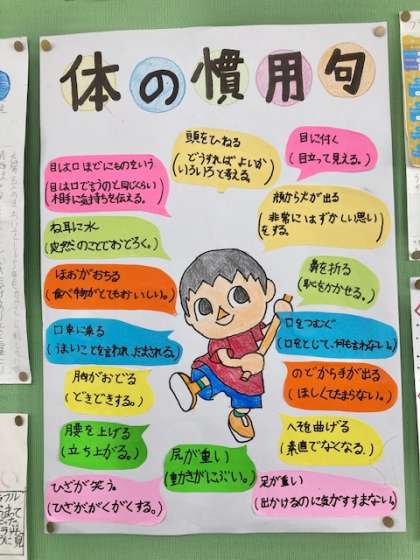 体の慣用句
頭をひねる
(どうすればよいか
いろいろと考える。)
目に付く
(目立って見える。)
目は口ほどにものをいう
(目は口で言うのと同じくらい
相手に気持ちを伝える。)
顔から火が出る
(非常にはずかしい思い
をする。)
ね耳に水
(突然のことでおどろく。)
鼻を折る
(恥をかかせる。)
ほおがおちる
(食べ物がとてもおいしい。)
口車に乗る
(うまいことを言われ、だまされる。)
口をつむぐ
(口をとじて、何も言わない。)
胸がおどる
(どきどきする。)
のどから手が出る
(ほしくてたまらない。)
腰を上げる
(立ち上がる。)
へそを曲げる
(素直でなくなる。)
尻が重い
(動きがにぶい。)
ひざが笑う
(ひざががくがくする。)
足が重い
(出かけるのに気がすすまない。)